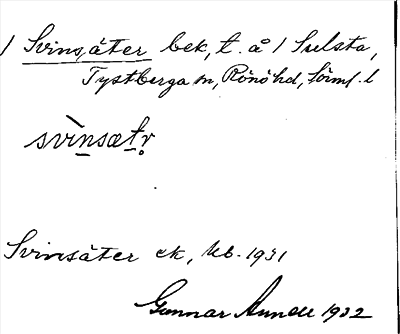 / Svinsäter bek, t. å / Sulsta,
Tystberga sn, Rönö hd, Sörml. l
svìnsætr̥
Svinsäter ek, Kb. 1931
Gunnar 1932